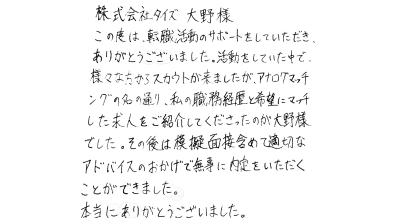 株式会社タイズ 大野様
この度は、転職活動のサポートをしていただき、
ありがとうございました。活動をしていた中で、
様々なちからスカウトが来ましたが、アナログマッチ
ングの名の通り、私の職務経歴と希望にマッチ
した求人をご紹介してくださったのが大野様
でした。その後は模擬面接含めて適切な
アドバイスのおかげで無事に内定をいただく
ことができました。
本当にありがとうございました。